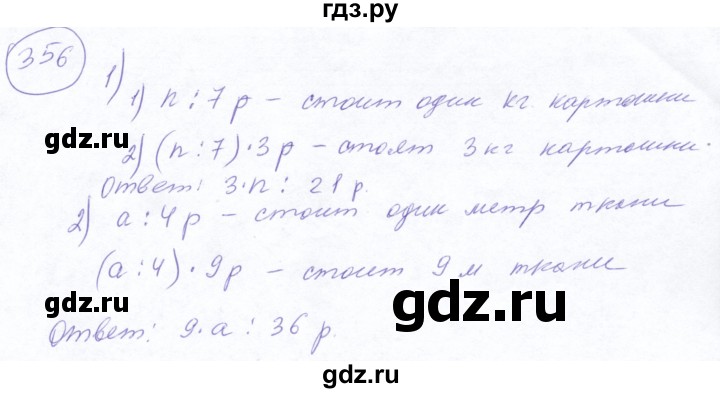 гдз.ру
356
1)
1) n : 7 р – стоит один кг картошки
gdz.ru
2) (n : 7) · 3 р – стоят 3 кг картошки.
Ответ: 3·n : 21 р.
2) a : 4 р – стоит один метр ткани
(a : 4) · 9 р – стоит 9 м ткани
gdz.ru
gdz.ru
Ответ: 9·a : 36 р.
gdz.ru